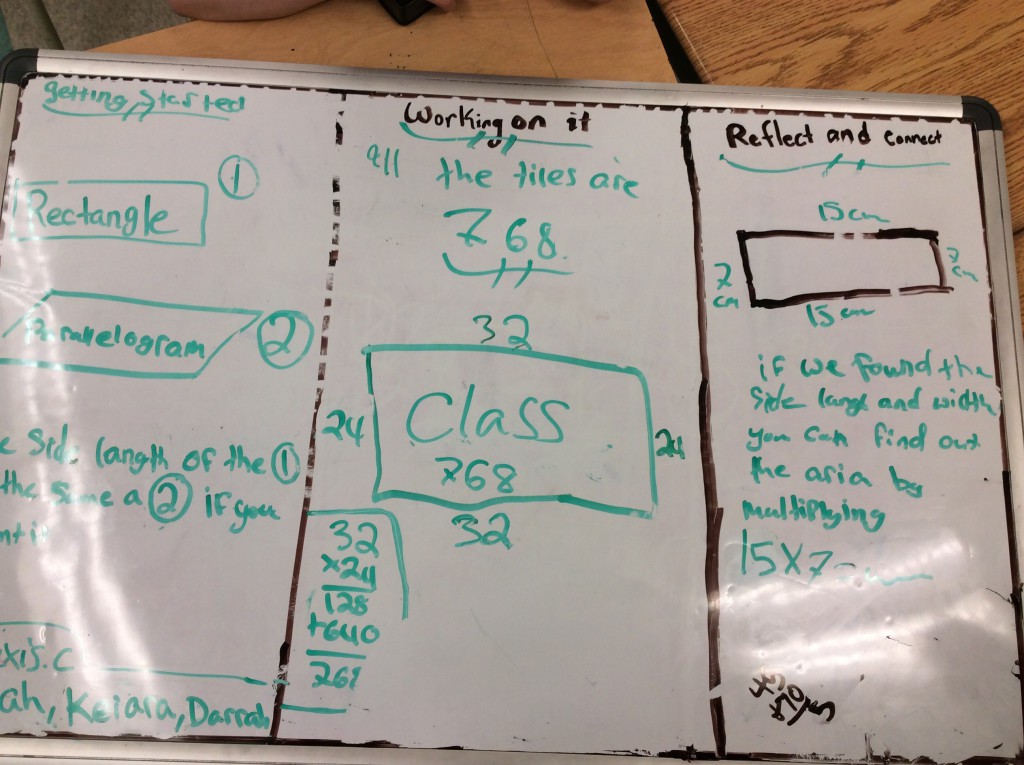 getting started
1
Rectangle
Parallelogram
2
e Side langth of the 1
the same a 2 if you
nt it
xis.C
ah, Keiara, Darrah
Working on it
all the tiles are
768.
32
24
Class
24
768
32
32
x24
128
+640
768
Reflect and connect
15cm
7
cm
7
cm
15cm
if we found the
side langt and width
you can find out
the aria by
multiplying
15x7=